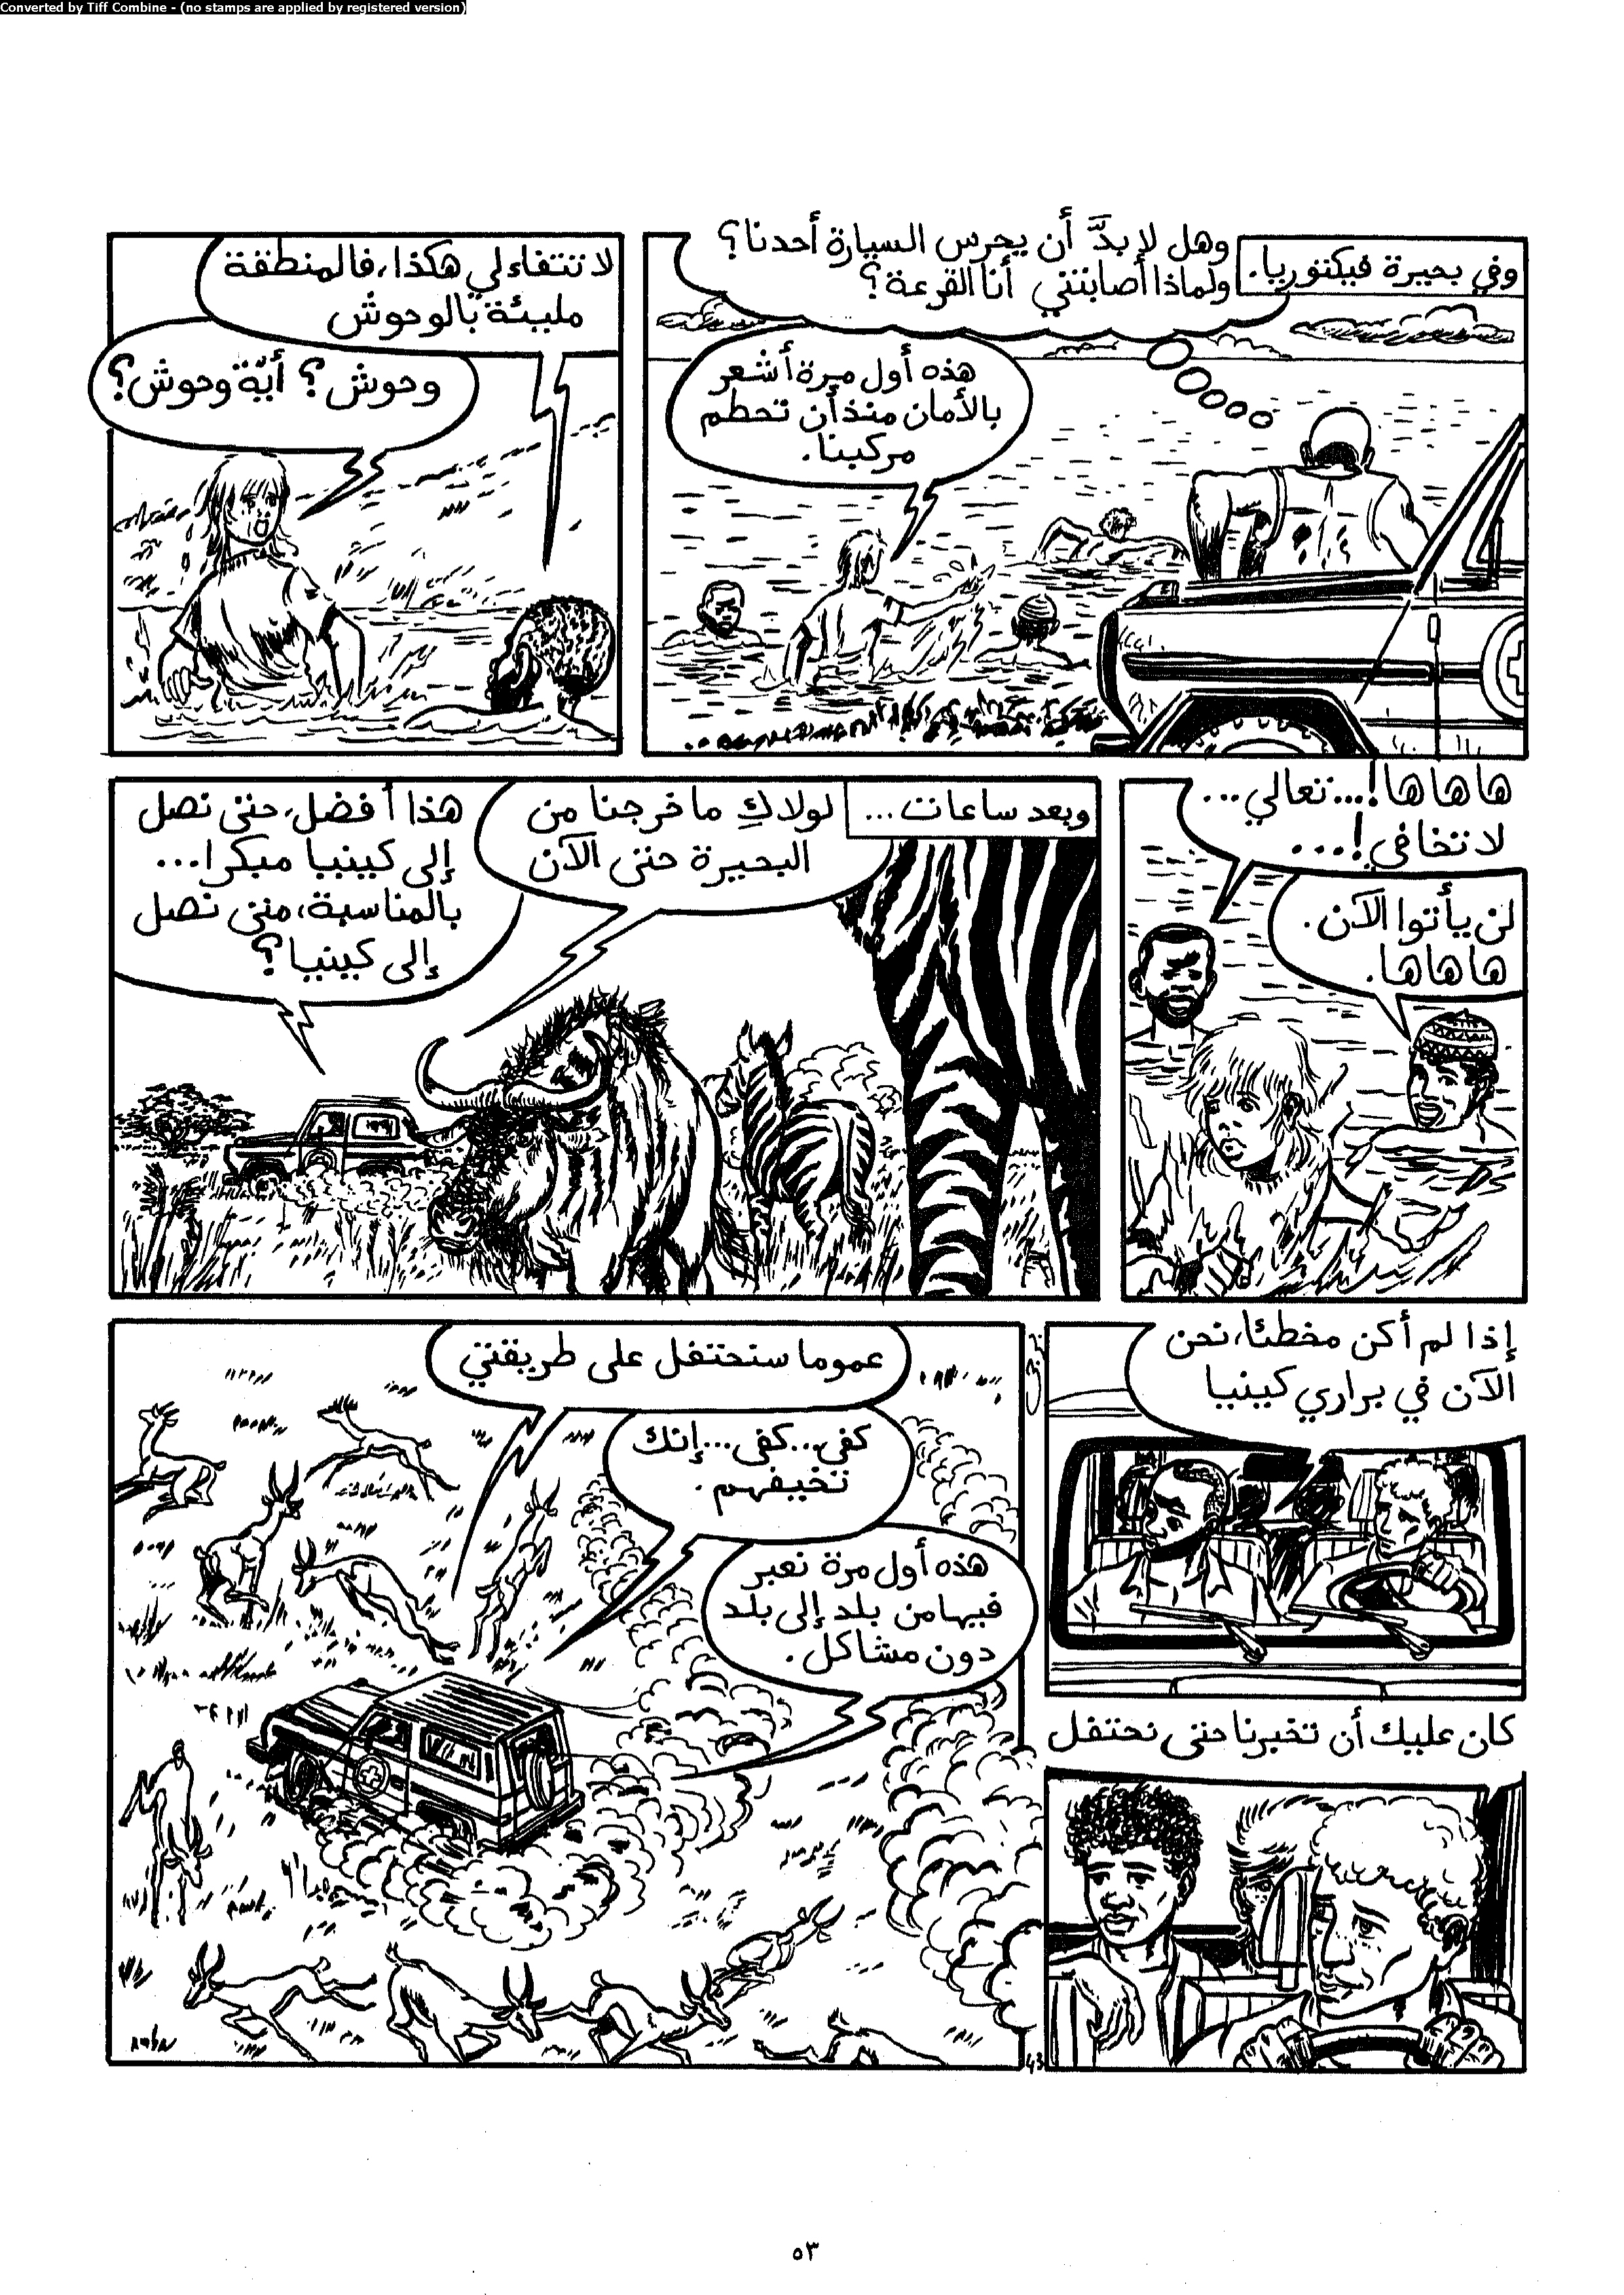 Converted by Tiff Combine - (no stamps are applied by registered version)
وفي بحيرة فيكتوريا.
وهل لابدَّ أن يحرس السيارة أحدنا؟
ولماذا أصابتني أنا القرعة؟
هذه أول مرة أشعر
بالأمان منذ أن تحطم
مركبنا.
لا تتفاءلي هكذا، فالمنطقة
مليئة بالوحوش
وحوش؟ أيّة وحوش؟
ها ها ها!...تعالي...
لا تخافي!...
لن يأتوا الآن.
ها ها ها.
وبعد ساعات...
لولاكِ ما خرجنا من
البحيرة حتى الآن
هذا أفضل، حتى نصل
إلى كينيا مبكرا...
بالمناسبة، متى نصل
إلى كينيا؟
إذا لم أكن مخطئا، نحن
الآن في براري كينيا
كان عليك أن تخبرنا حتى نحتفل
عموما سنحتفل على طريقتي
كفى...كفى...إنك
تخيفهم.
هذه أول مرة نعبر
فيها من بلد إلى بلد
دون مشاكل.
43
٥٣